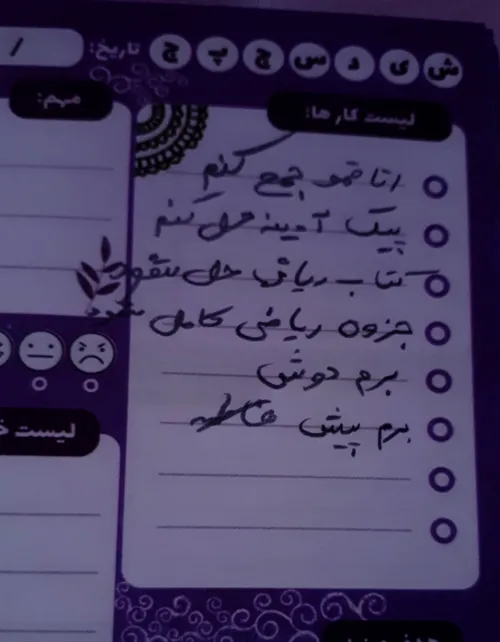 ش ی د س چ پ ج
تاریخ: /
مهم:
لیست کارها:
اتاقمو جمع کنم
پیک آدینه حل کنم
کتاب ریاضی حل شود
جزوه ریاضی کامل شود
برم دوش
برم پیش
لیست